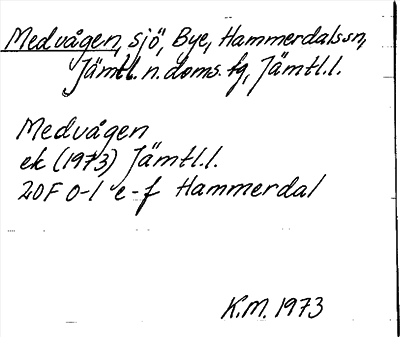 Medvågen, sjö, Bye, Hammerdalssn,
Jämtl. n. doms. fg, Jämtl. l.
Medvågen
ek (1973) Jämtl. l.
20F 0-1 e-f Hammerdal
K.M. 1973